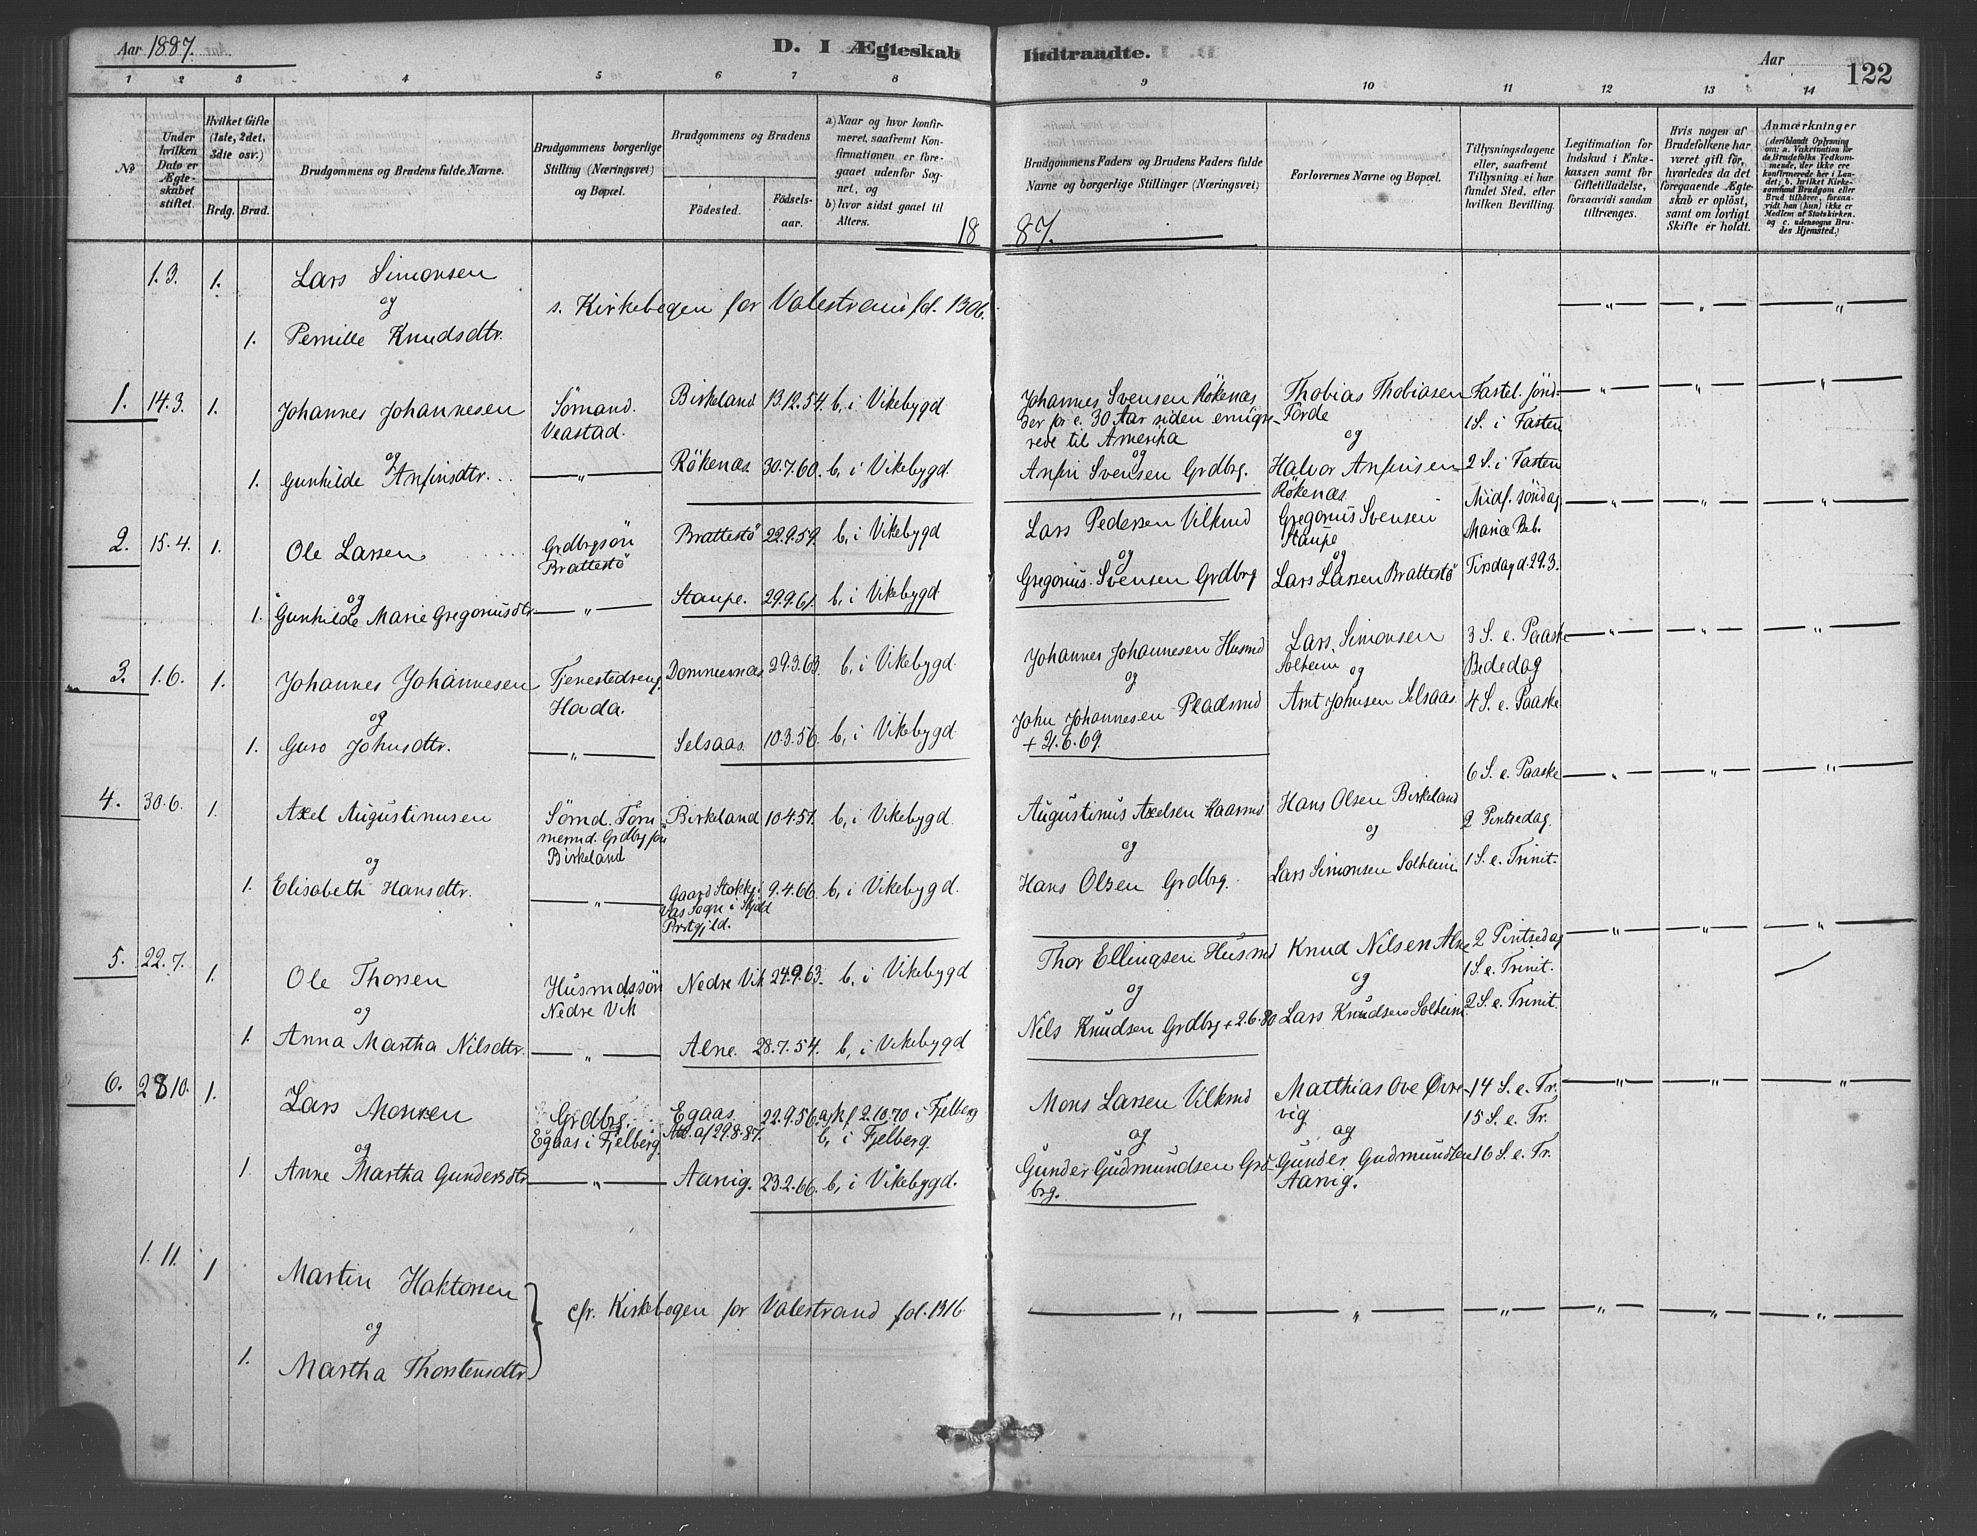 Aar 1887.
D. I Ægteskab Indtraadte.
Aar
122
1 2 3 4 5 6 7 8 9 10 11 12 13 14
No
Under hvilken Dato er Ægteskabet stiftet.
Hvilket Gifte (1ste, 2det, 3die osv.)
Brdg. Brud.
Brudgommens og Brudens fulde Navne.
Brudgommens borgerlige Stilling (Næringsvei) og Bopæl.
Brudgommens og Brudens
Fødested. Fødselsaar.
a) Naar og hvor konfirmeret, saafremt Konfirmationen er foregaaet udenfor Sognet, og
b) hvor sidst gaaet til Alters.
Brudgommens Faders og Brudens Faders fulde Navne og borgerlige Stillinger (Næringsvei)
Forlovernes Navne og Bopæl.
Tillysningsdagene eller, saafremt Tillysning ei har fundet Sted, efter hvilken Bevilling.
Legitimation for Indskud i Enkekassen samt for Giftetilladelse, forsaavidt saadan tiltrænges.
Hvis nogen af Brudefolkene har været gift før, hvorledes da det foregaaende Ægteskab er opløst, samt om lovligt Skifte er holdt.
Anmærkninger
(deriblandt Oplysning om: a. Vakcination for de Brudefolks Vedkommende, der ikke ere konfirmerede her i Landet; b. hvilket Kirkesamfund Brudgom eller Brud tilhører, forsaavidt han (hun) ikke er Medlem af Statskirken, og c. udensogns Brudes Hjemsted.)
18 87.
1.3. 1. Lars Simonsen
og
1. Pernille Knudsdtr.
s. Kirkebogen for Valestrand fol. 130b.
1. 14.3. 1. Johannes Johannesen
Sömand. Veastad.
Birkeland 13.12.54. b, i Vikebygd
Johannes Svensen Rökenæs
der for c. 30 Aar siden emigre-
rede til Amerika
Thobias Thobiasen
Förde
Fastel. sönd.
1 S. i Fasten
og
1. Gunhilde Anfinsdtr. — " —
Rökenæs. 30.7.60. b, i Vikebygd.
og
Anfin Svensen Grdbrg.
og
Halvor Anfinsen
Rökenæs.
2 S. i Fasten
2. 15.4. 1. Ole Larsen
Grdbrgsön
Brattestö
Brattestö 22.9.59. b, i Vikebygd
Lars Pedersen Vilkmd
Gregorius Svensen
Staupe
Midf. söndag
Mariæ Beb.
og
1. Gunhilde Marie Gregoriusdtr. — " —
Staupe. 29.9.61. b, i Vikebygd
og
Gregorius Svensen Grdbrg
og
Lars Larsen Brattestö
Tirsdag d. 29.3.
3. 1.6. 1. Johannes Johannesen
Tjenestedreng
Hada.
Dommersnæs 29.3.63. b, i Vikebygd.
Johannes Johannesen Husmd
Lars Simonsen
Solheim
3 S. e. Paaske
Bededag
og
1. Guro Johnsdtr. — " —
Selsaas. 10.3.56. b, i Vikebygd
og
John Johannesen Pladsmd
+ 21.6.69.
og
Arnt Johnsen Selsaas.
4 S. e. Paaske
4. 30.6. 1. Axel Augustinusen
Sömd. Töm
mermd. Grdbrgsön
Birkeland
Birkeland 10.4.57. b, i Vikebygd.
Augustinus Axelsen Kaarmd
Hans Olsen Birkeland
6 S. e. Paaske
2 Pintsedag.
og
1. Elisabeth Hansdtr. — " —
Gaard Stokke i
Vas Sogn i Skjold
Prstgjld.
9.4.66. b, i Vikebygd.
og
Hans Olsen Grdbrg.
og
Lars Simonsen Solheim
1 S. e. Trinit.
5. 22.7. 1. Ole Thorsen
Husmdssön
Nedre Vik
Nedre Vik 24.9.63. b, i Vikebygd
Thor Ellingsen Husmd
Knud Nilsen Alne
2 Pintsedag
1 S. e. Trinit.
og
1. Anna Martha Nilsdtr. — " —
Alne. 28.7.54. b, i Vikebygd
og
Nels Knudsen Grdbrg + 2.6.80
og
Lars Knudsen Solheim.
2 S. e. Trinit.
6. 28 10. 1. Lars Monsen
Grdbrg.
Egaas i Fjelberg.
Egaas.
Att. af 29.8.87.
22.9.56. a, Kf 2.10.70 i Fjelberg
b, i Fjelberg.
Mons Larsen Vilkmd
Matthias Ove Övre-
vig
14 S. e. Tr.
15 S. e. Tr.
og
1. Anne Martha Gundersdtr — " —
Aarvig. 23.2.66. b, i Vikebygd.
og
Gunder Gudmundsen Grd-
brg.
og
Gunder Gudmundsen
Aarvig.
16 S. e. Tr.
1. 11. 1 Martin Haktorsen
og
1. Martha Thorstensdtr.
cfr. Kirkebogen for Valestrand fol. 131b